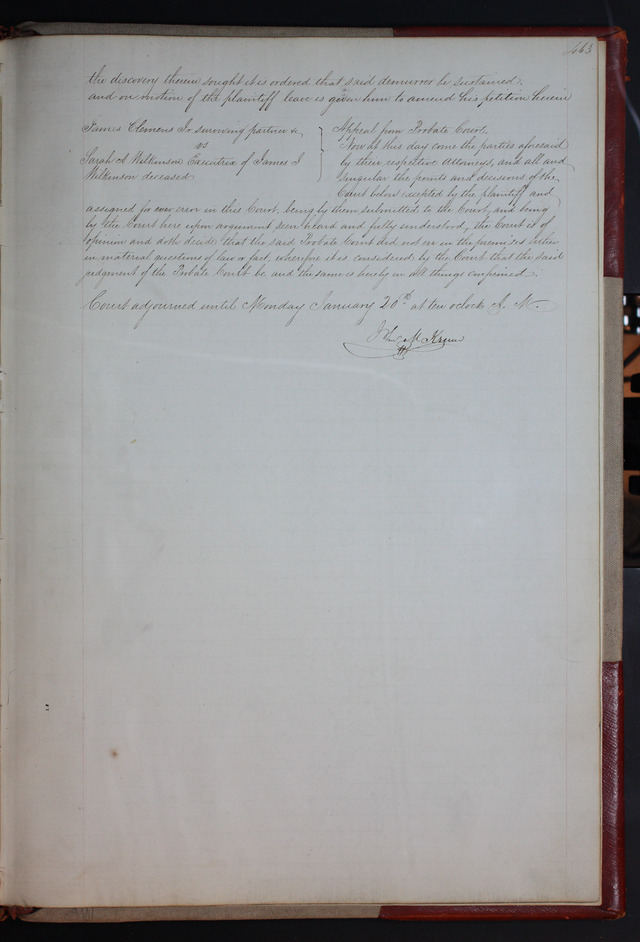 463
the discovery therein sought it is ordered that said demurrer be sustained;
and on motion of the plaintiff leave is given him to amend his petition herein
James Clemens Jr surviving partner &c
vs
Sarah A Wilkinson Executrix of James S
Wilkinson deceased
Appeal from Probate Court.
Now at this day come the parties aforesaid
by their respective Attorneys, and all and
singular the points and decisions of the
Court below excepted by the plaintiff and
assigned for error in this Court, being by them submitted to the Court, and being
by the Court here upon argument seen heard and fully understood, the Court is of
opinion and doth decide that the said Probate Court did not err in the premises either
in material questions of law or fact, wherefore it is considered by the Court that the said
judgment of the Probate Court be and the same is hereby in all things confirmed.
Court adjourned until Monday January 26th at ten oclock A. M.
John M Krum